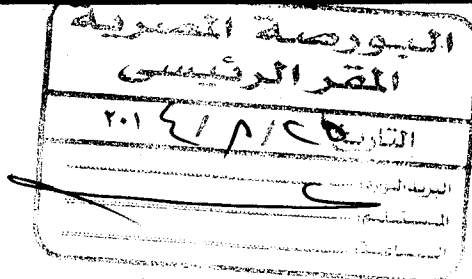 البورصة المصرية
المقر الرئيسى
التاريخ ٢٥ / ٨ / ٢٠١٤
البريد الوارد:
المستلم: